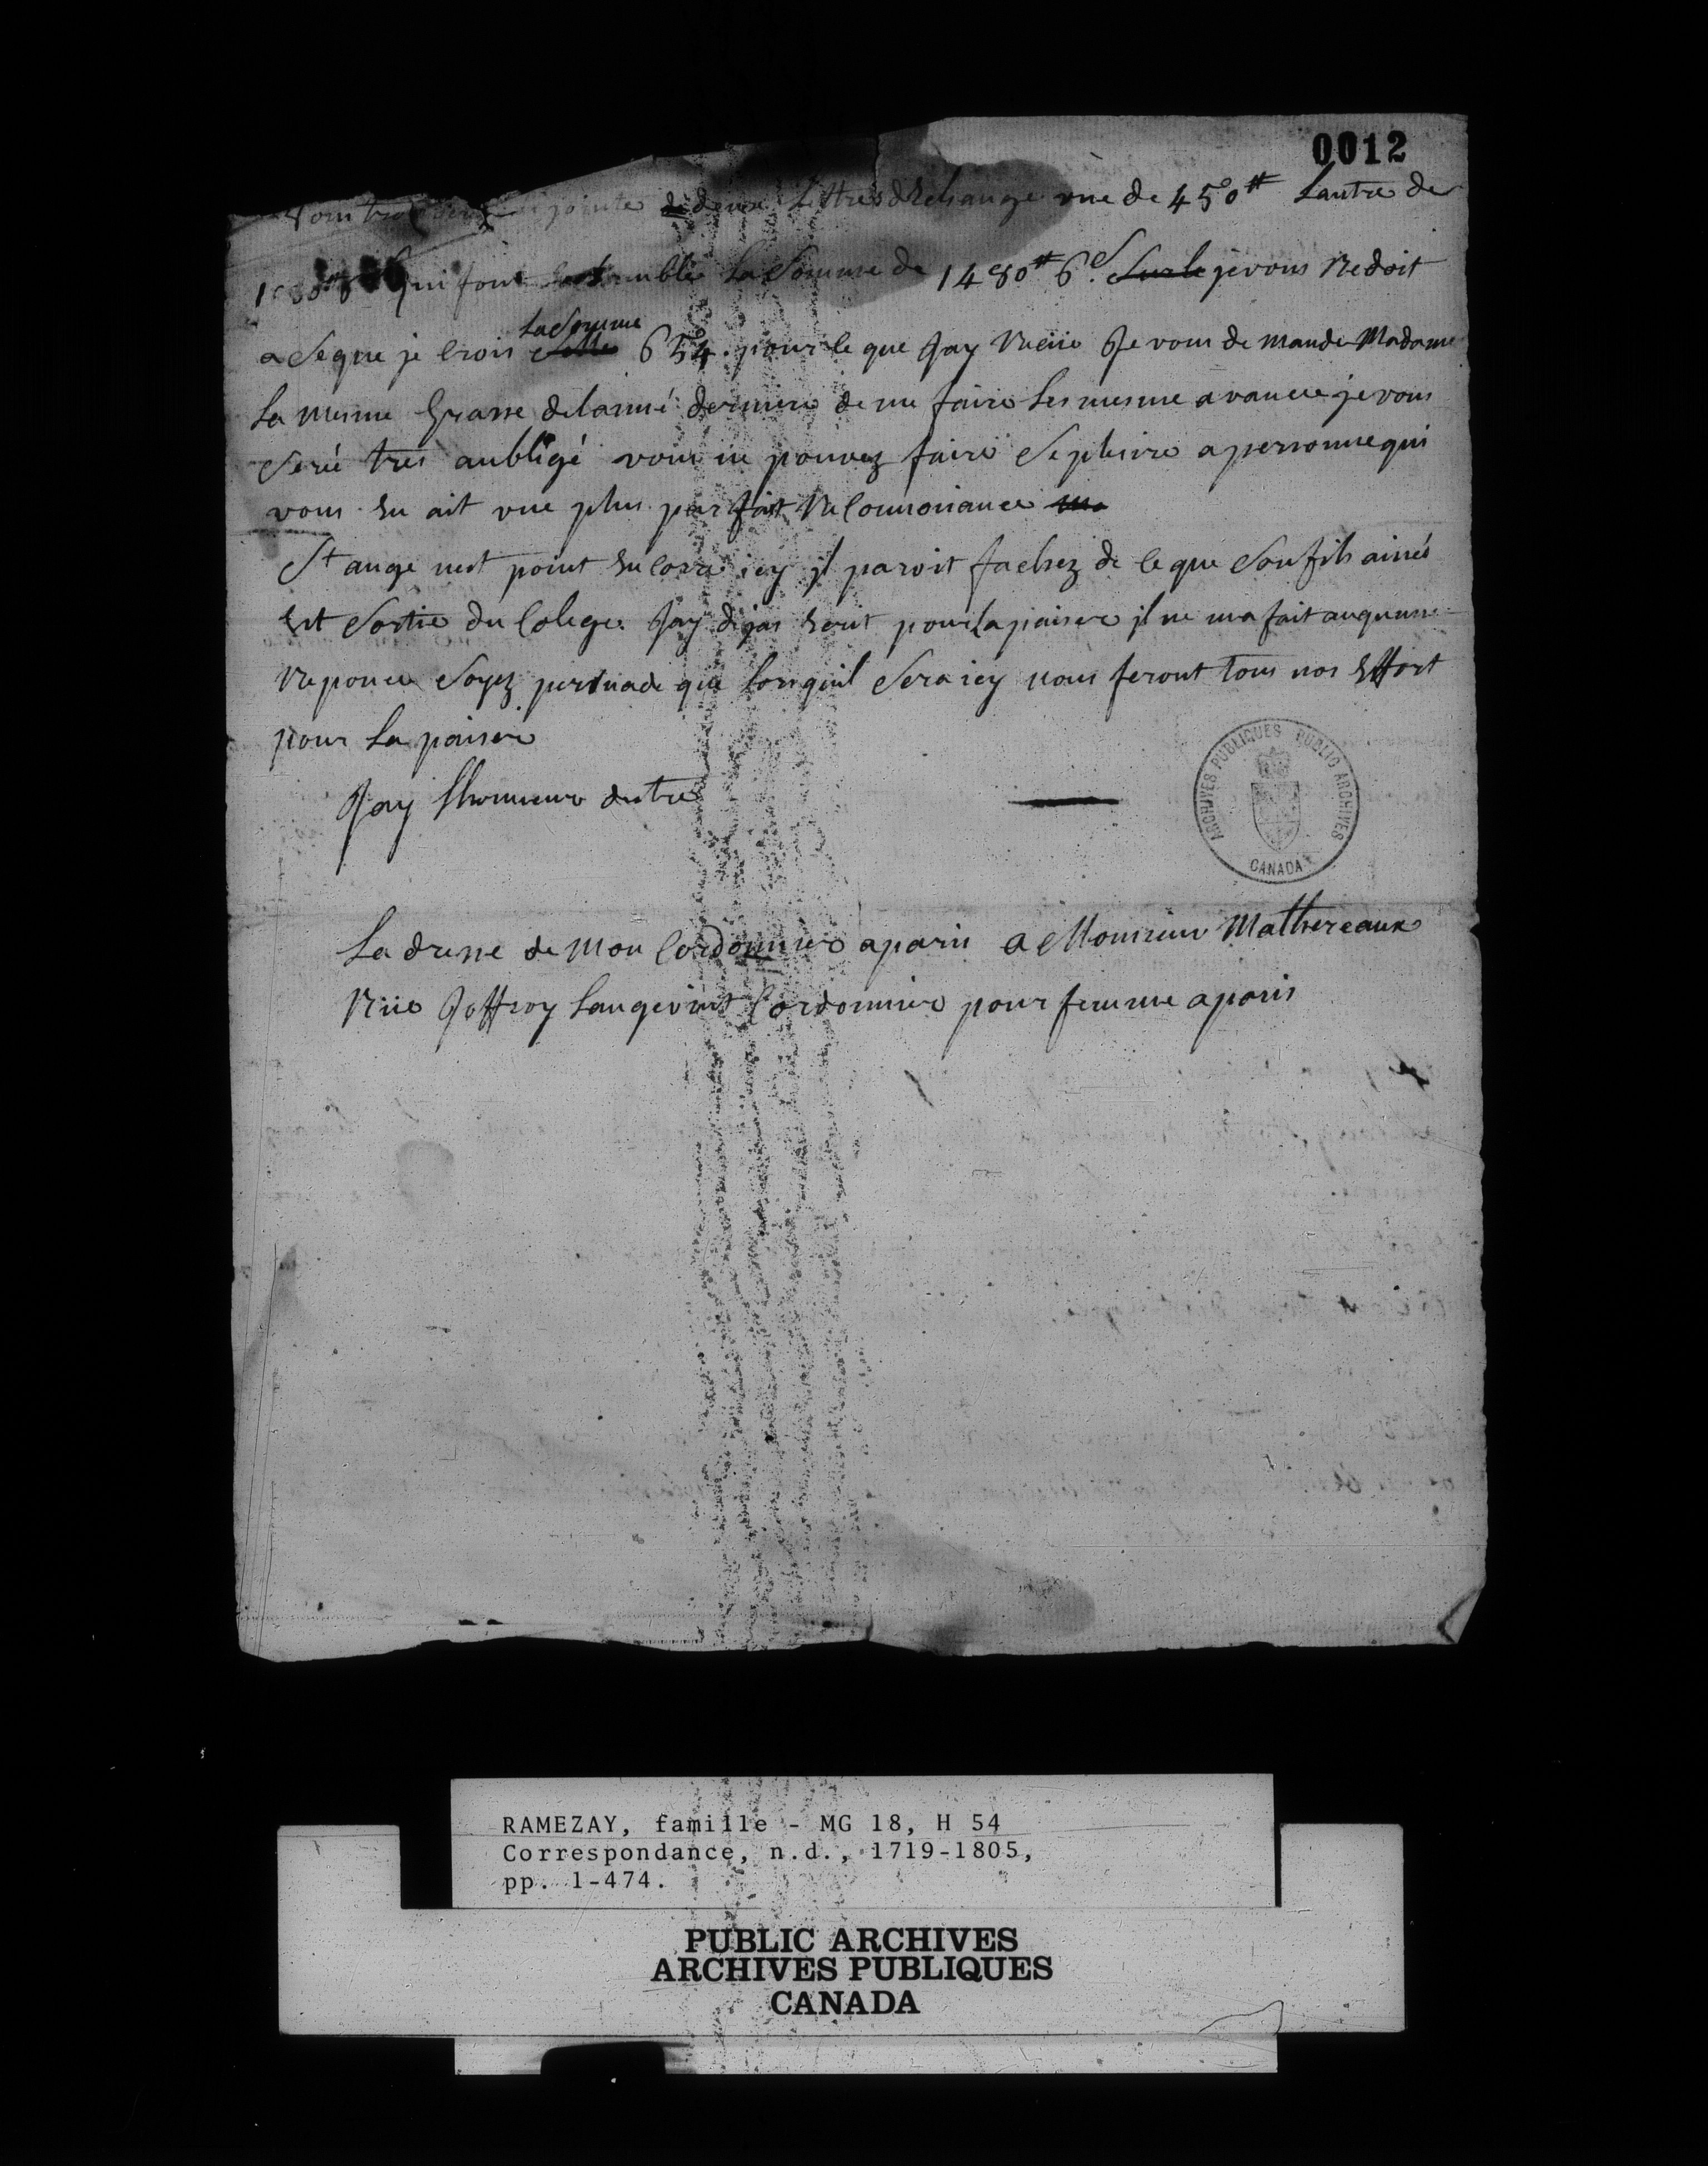 0012
vous trou jointe de deux Lettres dEchange une de 450# Lautre de
qui font Ensemble La Somme de 1480# 6s. Sur le je vous Redoit
a Se que je Crois Celle La Somme 654. pour le que Jay Reciie Je vous de mande Madame
La mesme Grasse delanné derniere de me faire Les mesme avance je vous
Seré tres aubligé vous ne pouvez faire Se plesire a personne qui
vous En ait une plus parfait Reconnoisance
St ange nest point En core icy il paroit fachez de Ce que Son fils ainés
Est Sortie du Colege. Jay dejas Ecrit pour Lapaiser il ne ma fait auqunne
Reponce Soyez persuade que Lorsquil Sera icy nous feront tous nos Effort
pour La paiser
Jay Lhonneur detre
La dresse de mon Cordonnier a paris a Monsieur Mathereaux
Riie Joffroy Langevint Cordonnier pour femme a paris
ARCHIVES PUBLIQUES PUBLIC ARCHIVES
CANADA
RAMEZAY, famille - MG 18, H 54
Correspondance, n.d., 1719-1805,
pp. 1-474.
PUBLIC ARCHIVES
ARCHIVES PUBLIQUES
CANADA